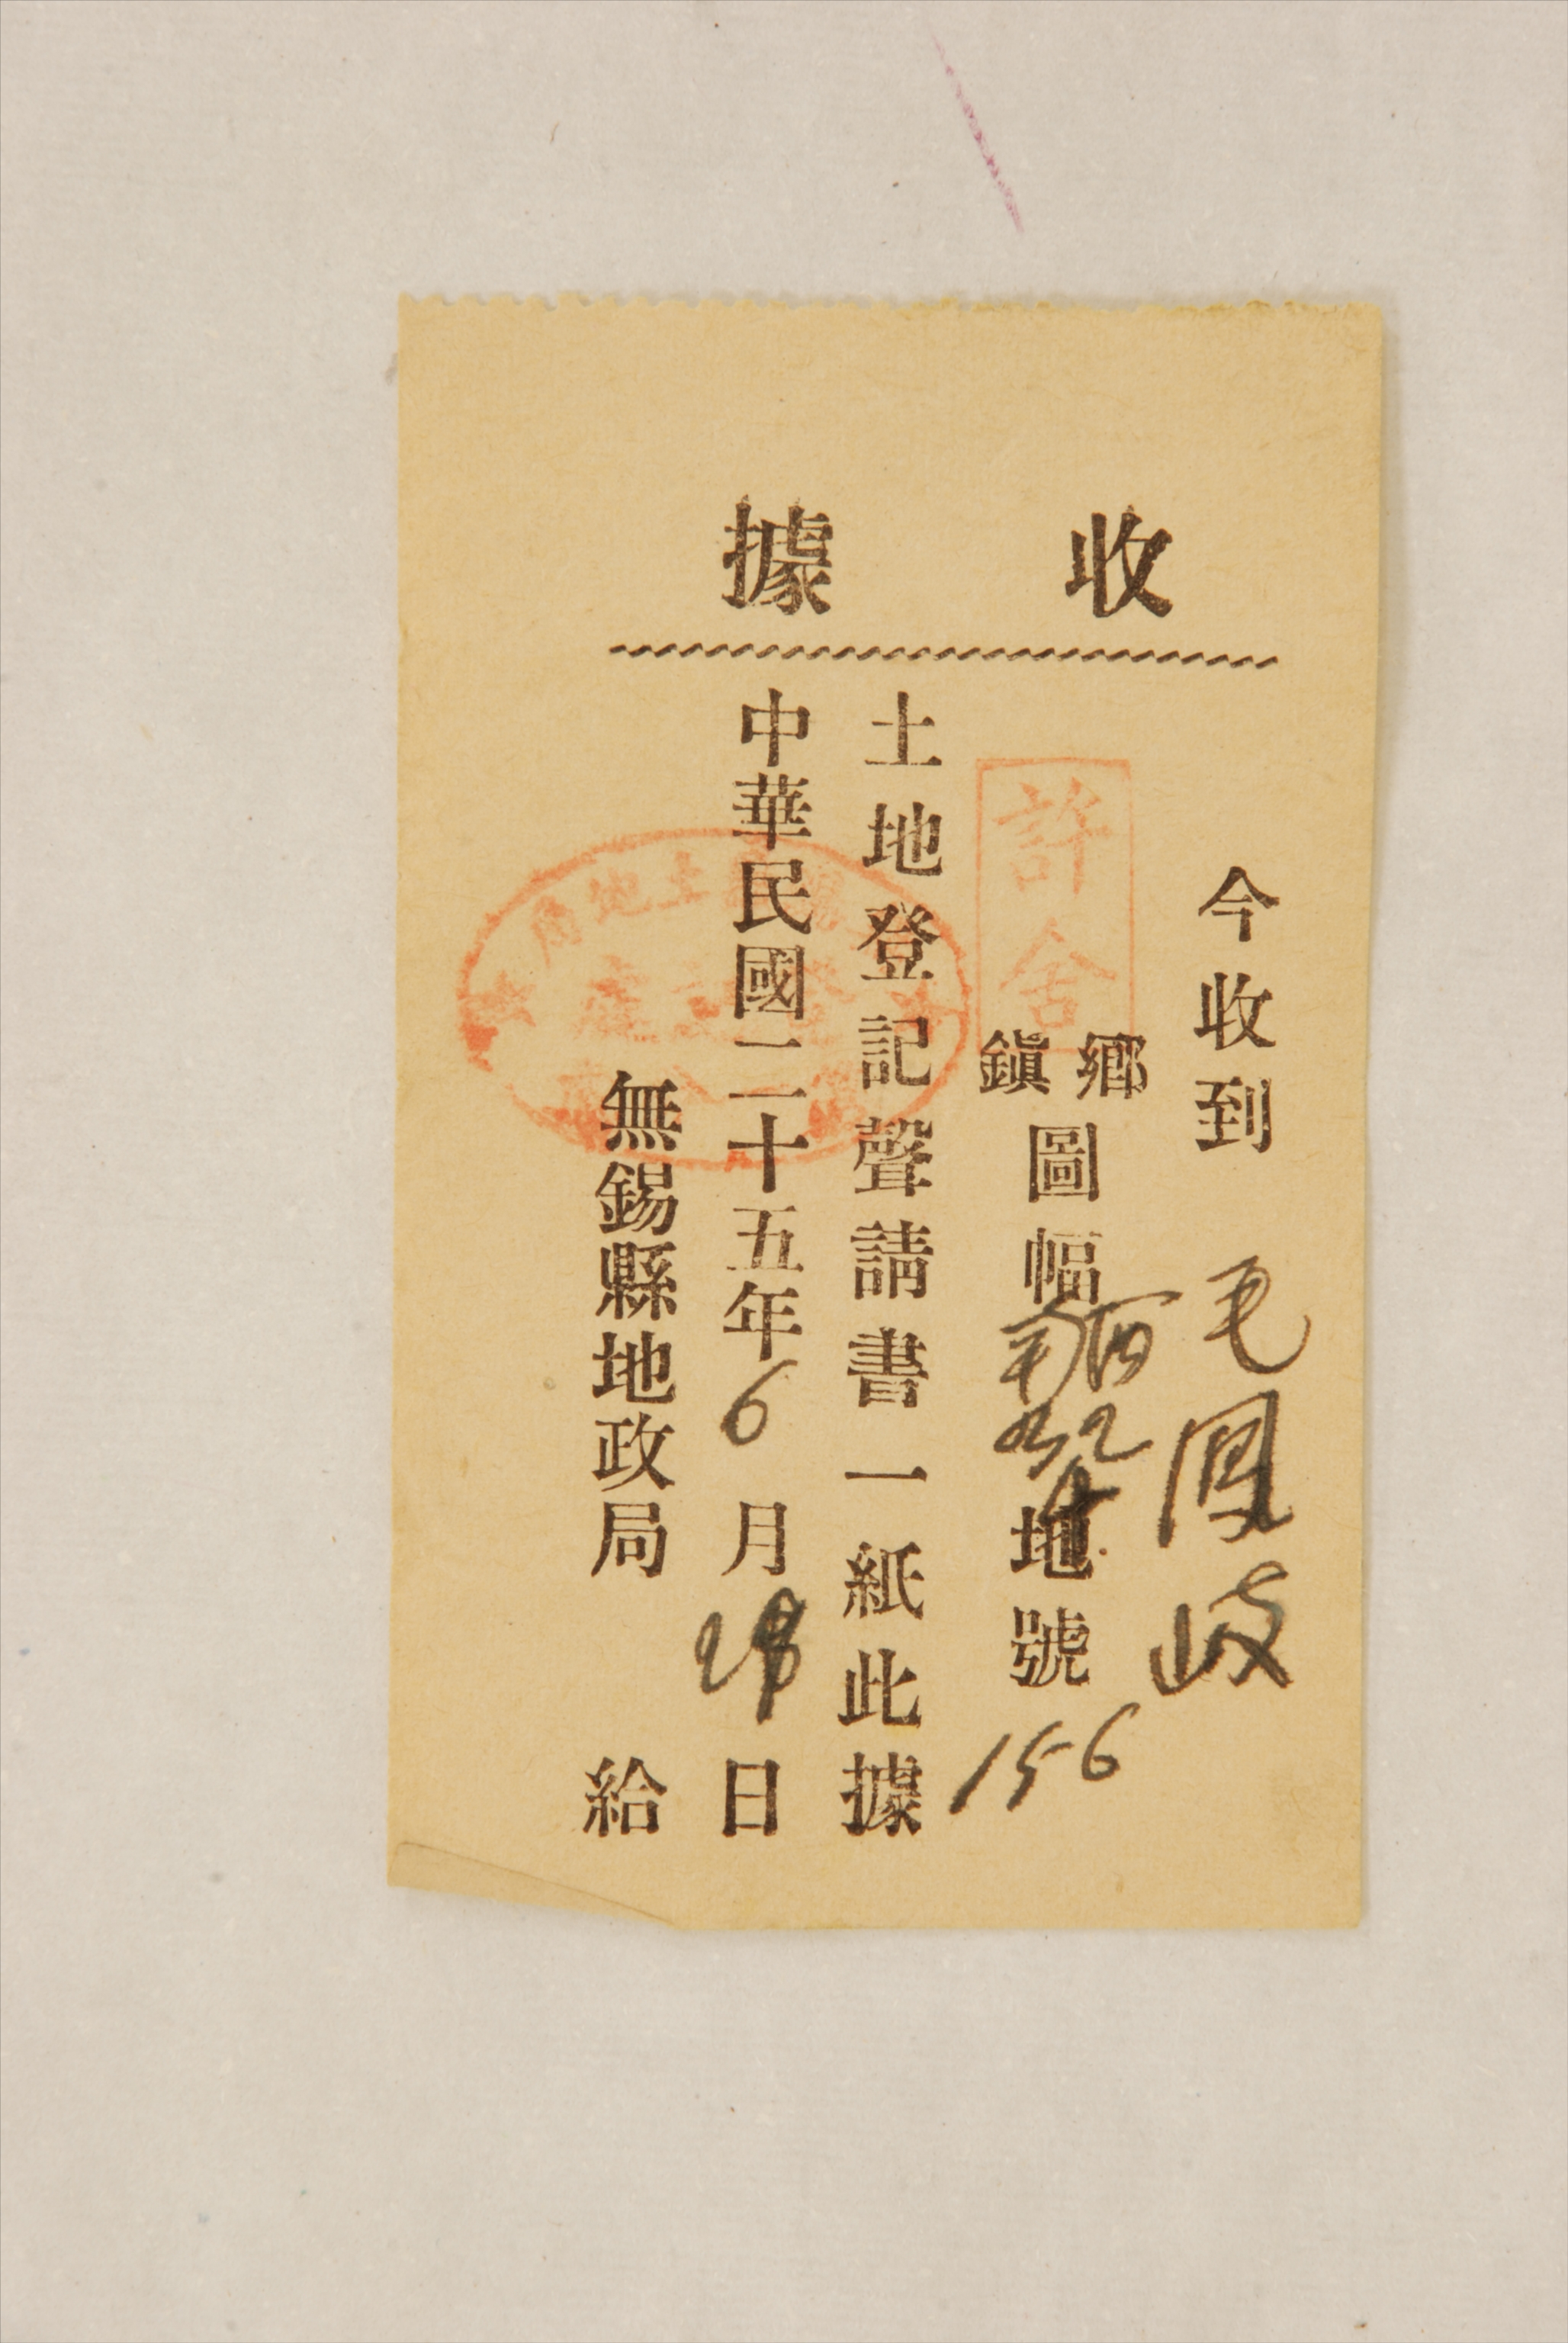 收據
今收到 毛鳳岐
許舍鄉鎮圖幅地號 156
土地登記聲請書一紙此據
中華民國二十五年6月日
無錫縣地政局給
土地局